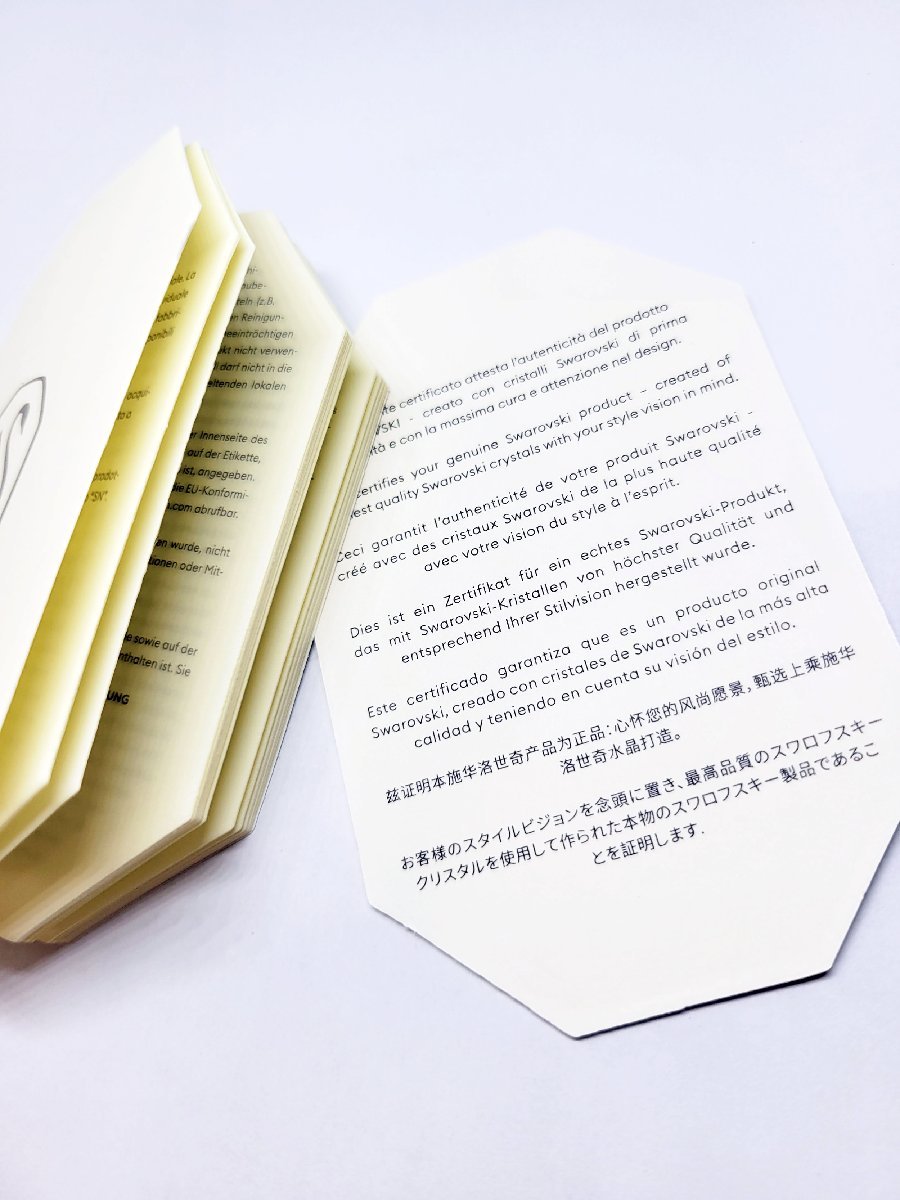 ale. La
viduale
fabbri-
onibili
acqui-
to a
prodot-
o "SN".
hi-
nube-
teln (z.B.
en Reinigun-
beeinträchtigen
kt nicht verwen-
darf nicht in die
eltenden lokalen
er Innenseite des
auf der Etikette,
ist, angegeben.
die EU-Konformi-
.com abrufbar.
an wurde, nicht
tionen oder Mit-
e sowie auf der
nthalten ist. Sie
UNG
te certificato attesta l'autenticità del prodotto
VSKI - creato con cristalli Swarovski di prima
ità e con la massima cura e attenzione nel design.
certifies your genuine Swarovski product - created of
est quality Swarovski crystals with your style vision in mind.
Ceci garantit l'authenticité de votre produit Swarovski -
créé avec des cristaux Swarovski de la plus haute qualité
avec votre vision du style à l'esprit.
Dies ist ein Zertifikat für ein echtes Swarovski-Produkt,
das mit Swarovski-Kristallen von höchster Qualität und
entsprechend Ihrer Stilvision hergestellt wurde.
Este certificado garantiza que es un producto original
Swarovski, creado con cristales de Swarovski de la más alta
calidad y teniendo en cuenta su visión del estilo.
兹证明本施华洛世奇产品为正品：心怀您的风尚愿景，甄选上乘施华
洛世奇水晶打造。
お客様のスタイルビジョンを念頭に置き、最高品質のスワロフスキー
クリスタルを使用して作られた本物のスワロフスキー製品であるこ
とを証明します.